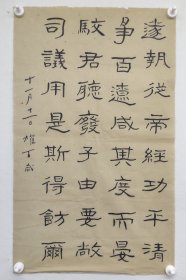 遂執從帝經功平清
爭百遠咸其度而晏
駮君聽發子由要敞
司議用是斯得飭爾
十一月十一日